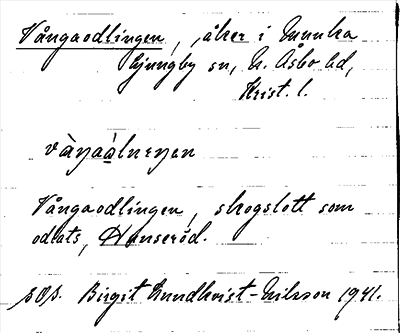 Vångaodlingen, åker i Munka
ljungby sn, N. Åsbo hd,
Krist. l.
Vångaodlingen, skogslott som
odlats, Hanseröd.
sOp. Birgit Lundkvist-Nilsson 1941.